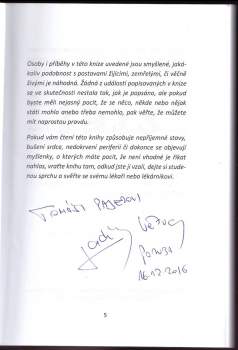 Osoby i příběhy v této knize uvedené jsou smyšlené, jaká-
koliv podobnost s postavami žijícími, zemřelými, či věčně
živými je náhodná. Žádná z událostí popisovaných v knize
se ve skutečnosti nestala tak, jak je popsáno, ale pokud
byste měli nejasný pocit, že se něco, někde nebo nějak
státi mohlo anebo třeba nemohlo, pak věřte, že můžete
mít naprostou pravdu.
Pokud vám čtení této knihy způsobuje nepříjemné stavy,
bušení srdce, nedokrvení periferií či dokonce se objevují
myšlenky, o kterých máte pocit, že není vhodné je říkat
nahlas, vraťte knihu tam, odkud jste ji vzali, dejte si stude-
nou sprchu a svěřte se svému lékaři nebo lékárníkovi.
TOMÁŠI
16.12.2016
5